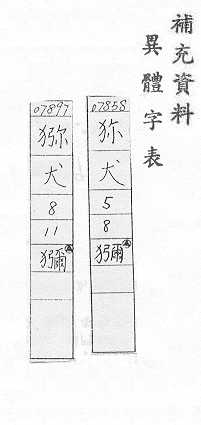 補充資料
異體字表
07858
狝
犬
5
8
獼
07897
猕
犬
8
11
獼